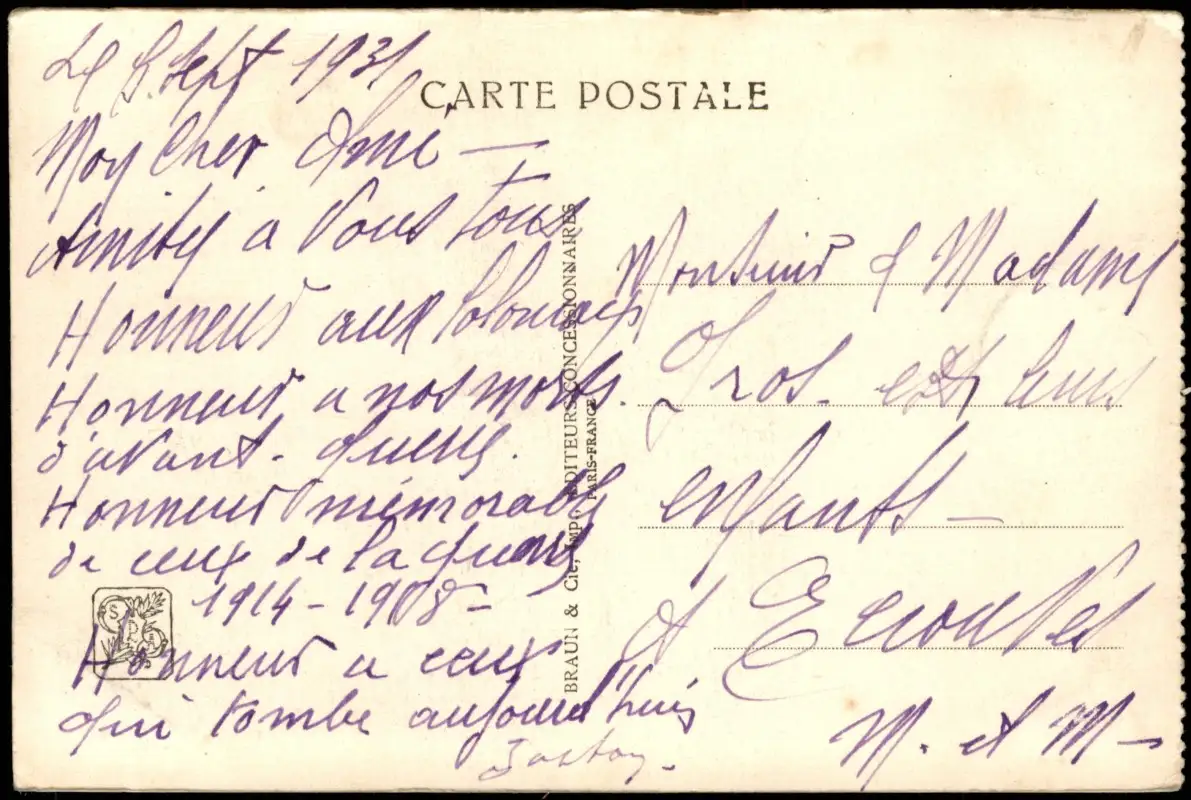 Le 8. Sept 1931
CARTE POSTALE
Mon Cher Ami —
Amitié a Vous tous
Honneur aux Coloniaux
Honneur a nos morts
d'avant-guerre.
Honneur mémorable
de ceux de la guerre
1914 - 1908 -
Honneur a ceux
qui tombe aujourd'huis
Gaston.
BRAUN & Cie, IMPR. EDITEURS-CONCESSIONNAIRES
PARIS-FRANCE
Monsieur & Madame
Gros. et leurs
enfants —
à Ecouves
M. et M —